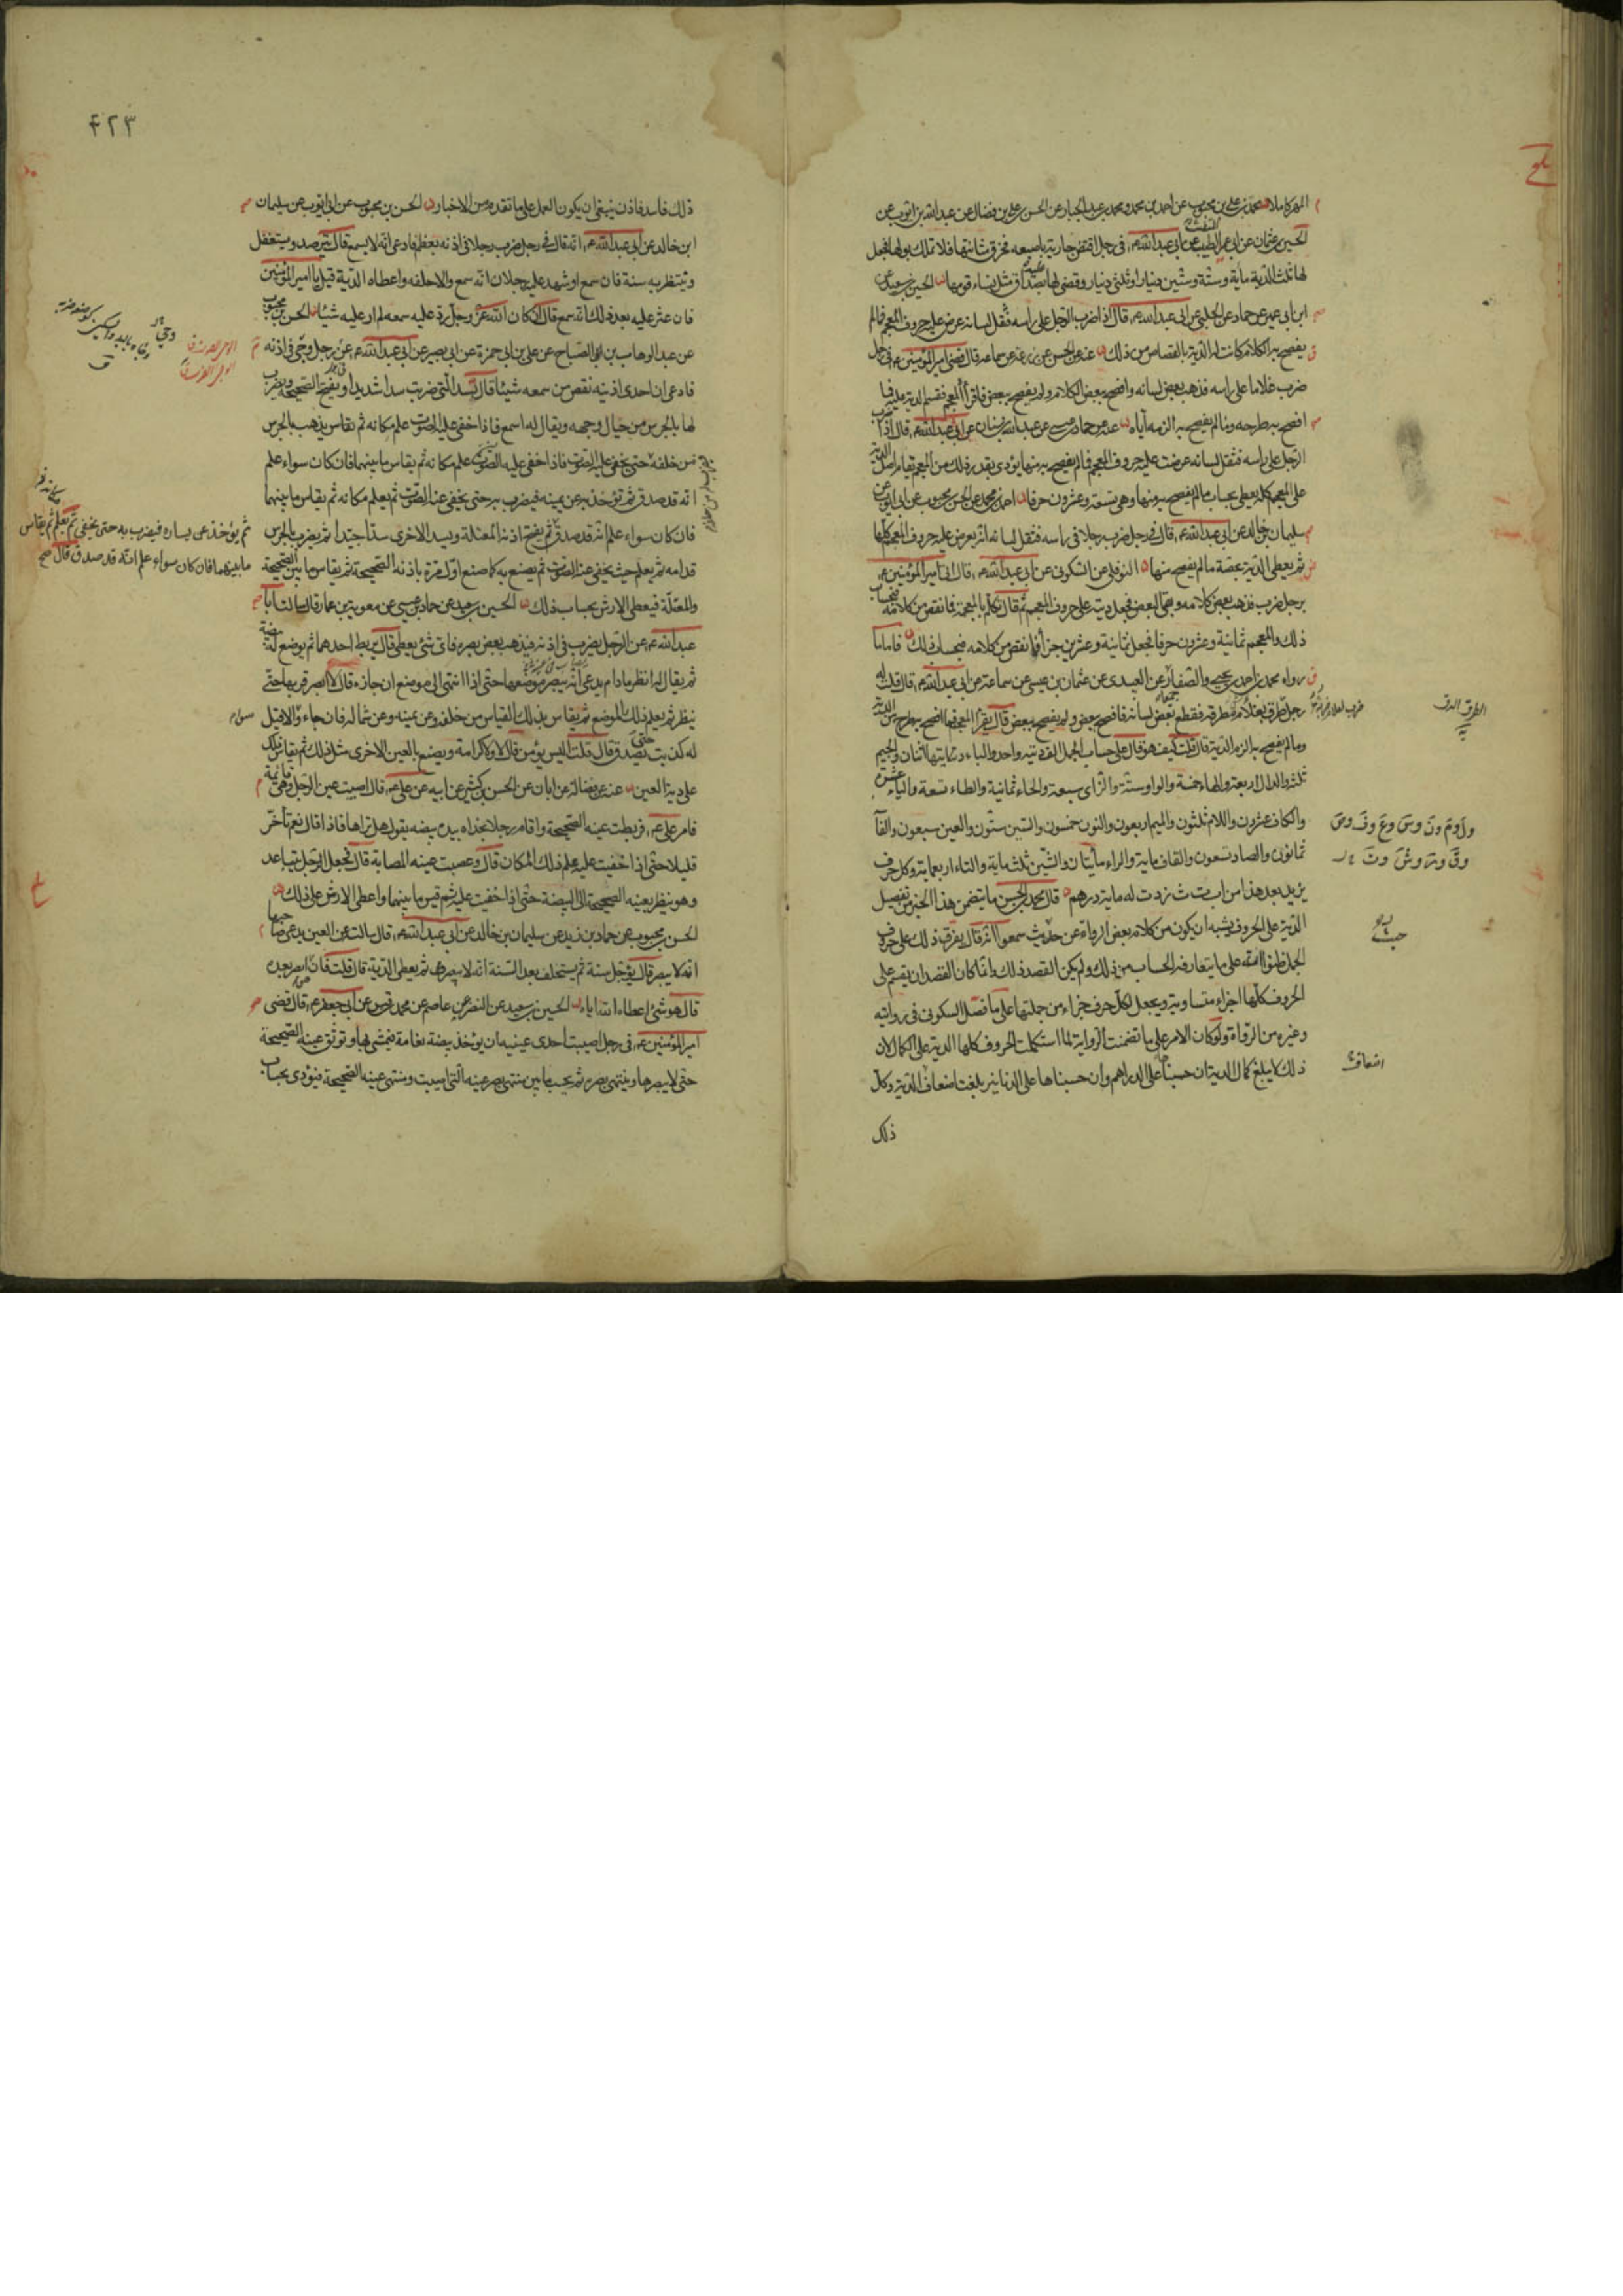 المهر كاملا محمد بن علي بن محبوب عن احمد بن محمد ومحمد بن عبد الجبار عن الحسن بن علي بن فضال عن عبد الله بن ايوب عن
الحسين بن عثمان عن ابي عمر الطبيب عن ابي عبد الله ع في رجل افتض جارية باصبعه فخرق مثانتها فلا تملك بولها فجعل
لها ثلث الدية مائة وستة وستين دينار او ثلثي دينار وقضى لها عليه بصداق مثل نساء قومها الحسين بن سعيد عن
ابن ابي عمير عن حماد عن الحلبي عن ابي عبد الله ع قال اذا ضرب الرجل على راسه فثقل لسانه عرض عليه حروف المعجم فما لم
يفصح به الكلام كانت له الدية بالقصاص من ذلك عنه عن الحسن عن زرعة عن سماعة قال قضى امير المؤمنين ع في رجل
ضرب غلاما على راسه فذهب بعض لسانه وافصح ببعض الكلام ولم يفصح ببعض فاقرأ المعجم فقسم الدية عليه فما
افصح به طرحه وما لم يفصح به الزمه اياه عنه عن حماد بن عيسى عن عبد الله بن سنان عن ابي عبد الله ع قال اذا ضرب
الرجل على راسه فثقل لسانه عرضت عليه حروف المعجم فما لم يفصح به منها يؤدي بقدر ذلك من المعجم يقام اصل الدية
على المعجم كله يعطى بحساب ما لم يفصح به منها وهي تسعة وعشرون حرفا احمد بن محمد عن الحسن بن محبوب عن ابي ايوب عن
سليمان بن خالد عن ابي عبد الله ع قال في رجل ضرب رجلا في راسه فثقل لسانه انه يعرض عليه حروف المعجم كلها
ثم يعطى الدية بحصة ما لم يفصح منها النوفلي عن السكوني عن ابي عبد الله ع قال اتي امير المؤمنين ع
برجل ضرب فذهب بعض كلامه وبقي البعض فجعل ديته على حروف المعجم ثم قال تكلم بالمعجم فما نقص من كلامه فبحساب
ذلك والمعجم ثمانية وعشرون حرفا فجعل ثمانية وعشرين جزأ فما نقص من كلامه فبحساب ذلك فاما ما
رواه محمد بن احمد بن يحيى والصفار عن العبيدي عن عثمان بن عيسى عن سماعة عن ابي عبد الله ع قال قلت له
رجل طرق بغلام طرقة فقطع بعض لسانه فافصح ببعض ولم يفصح ببعض قال يقرأ المعجم فما افصح به طرح من الدية
وما لم يفصح به الزم الدية قال قلت كيف هو قال على حساب الجمل الف ديته واحد والباء ديتها اثنان والجيم
ثلثة والدال اربعة والهاء خمسة والواو ستة والزاي سبعة والحاء ثمانية والطاء تسعة والياء عشرة
والكاف عشرون واللام ثلثون والميم اربعون والنون خمسون والسين ستون والعين سبعون والفا
ثمانون والصاد تسعون والقاف مائة والراء مائتان والشين ثلثمائة والتاء اربعمائة وكل حرف
يزيد بعد هذا من ا ب ت ث زدت له مائة درهم قال محمد بن الحسن ما يتضمن هذا الخبر من تفصيل
الدية على الحروف يشبه ان يكون من كلام بعض الرواة عن حديث سمعوا انه قال يفرق ذلك على حروف
الجمل ظنوا انه على ما يتعارفه الحساب من ذلك ولم يكن القصد ذلك وانما كان القصد ان يقسم على
الحروف كلها اجزاء متساوية ويجعل لكل حرف جزاء من جملتها على ما فصل السكوني في روايته
وغيره من الرواة ولو كان الامر على ما تضمنت الرواية لما استكملت الحروف كلها الدية على الكمال لان
ذلك لا يبلغ كمال الدية ان حسبناها على الدراهم وان حسبناها على الدنانير بلغت اضعاف الدية وكل
ذلك
اضعاف
۴۲۳
ذلك فاسد فاذن ينبغي ان يكون العمل على ما تقدم من الاخبار الحسن بن محبوب عن ابي ايوب عن سليمان
ابن خالد عن ابي عبد الله ع انه قال في رجل ضرب رجلا في اذنه بعظم فادعى انه لا يسمع قال يترصد ويستغفل
وينتظر به سنة فان سمع او شهد عليه رجلان انه سمع والا حلفه واعطاه الدية قيل يا امير المؤمنين
فان عثر عليه بعد ذلك انه سمع قال ان كان الله عز وجل رد عليه سمعه لم ار عليه شيئا الحسن بن محبوب
عن عبد الوهاب بن الصباح عن علي بن ابي حمزة عن ابي بصير عن ابي عبد الله ع عن رجل وجي في اذنه
فادعى ان احدى اذنيه نقص من سمعه شيئا قال تسد التي ضربت سدا شديدا ويفتح الصحيحة ويضرب
لها بالجرس من حيال وجهه ويقال له اسمع فاذا خفي عليه الصوت علم مكانه ثم يقاس يذهب بالجرس
من خلفه حتى يخفى عليه الصوت فاذا خفي عليه الصوت علم مكانه ثم يقاس ما بينهما فان كان سواء علم
انه قد صدق ثم تؤخذ به عن يمينه فيضرب به حتى يخفى عنه الصوت ثم يعلم مكانه ثم يقاس ما بينهما
فان كان سواء علم انه قد صدق ثم يفتح اذنه المعتلة ويسد الاخرى سدا جيدا ثم يضرب بالجرس
قدامه ثم يعلم حيث يخفى عنه الصوت ثم يصنع به كما صنع اول مرة باذنه الصحيحة ثم يقاس ما بين الصحيحة
والمعتلة فيعطى الارش بحساب ذلك الحسين بن سعيد عن حماد بن عيسى عن معوية بن عمار قال سالت ابا
عبد الله ع عن الرجل يضرب في اذنه فيذهب بعض بصره فاي شئ يعطى قال يربط احدهما ثم يوضع له بيضة
ثم يقال له انظر ما دام يدعي انه يبصر موضعها حتى اذا انتهى الى موضع ان جازه قال لا ابصر قربها حتى
ينظر ثم يعلم ذلك الموضع ثم يقاس بذلك القياس من خلفه وعن يمينه وعن شماله فان جاء والا قيل
له كذبت حتى تصدق قال قلت اليس يؤمن قال لا ولا كرامة ويصنع بالعين الاخرى مثل ذلك ثم يقاس ذلك
على دية العين عنه عن فضالة عن ابان عن الحسن بن كثير عن ابيه عن علي ع قال اصيبت عين الرجل وهي قائمة
فامر علي ع فربطت عينه الصحيحة واقام رجلا بحذاه بيده بيضه يقول هل تراها فاذا قال نعم تأخر
قليلا حتى اذا خفيت عليه علم ذلك المكان قال وعصبت عينه المصابة قال فجعل الرجل يتباعد
وهو ينظر بعينه الصحيحة الى البيضة حتى اذا خفيت عليه ثم قيس ما بينهما واعطى الارش على ذلك
الحسن بن محبوب عن حماد بن زيد عن سليمان بن خالد عن ابي عبد الله ع قال سالت عن العين يدعي صاحبها
انه لا يبصر قال يؤجل سنة ثم يستحلف بعد السنة انه لا يبصرها ثم يعطى الدية قال قلت فان ابصر بعده
قال هو شئ اعطاه الله اياه الحسين بن سعيد عن النضر عن عاصم عن محمد بن قيس عن ابي جعفر ع قال قضى
امير المؤمنين ع في رجل اصيبت احدى عينيه ان يؤخذ بيضة نعامة فيمشى بها وتوثق عينه الصحيحة
حتى لا يبصرها وينتهي بصره ثم يحسب ما بين منتهى بصر عينه التي اصيبت ومنتهى عينه الصحيحة فيؤدى بحساب
ثم يؤخذ عن يساره فيضرب به حتى يخفى ثم يعلم ثم يقاس
ما بينهما فان كان سواء علم انه قد صدق قال صح